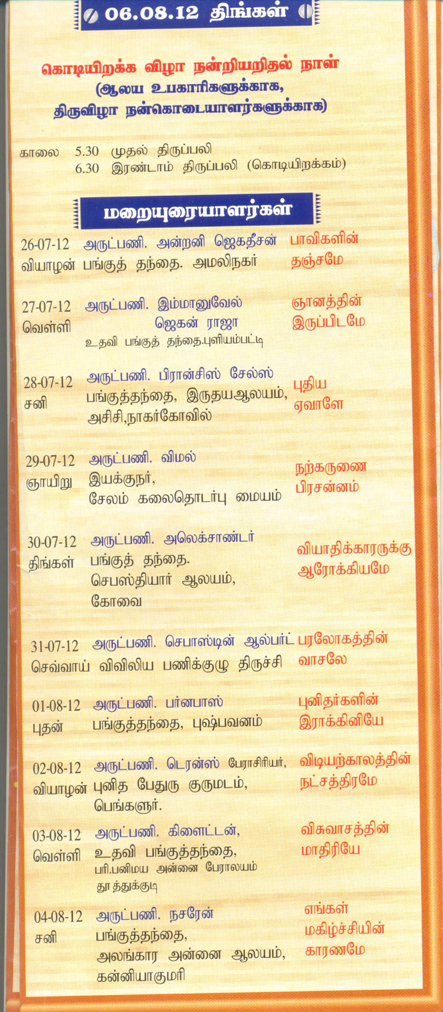 06.08.12 திங்கள்
கொடியிறக்க விழா நன்றியறிதல் நாள்
(ஆலய உபகாரிகளுக்காக,
திருவிழா நன்கொடையாளர்களுக்காக)
காலை 5.30 முதல் திருப்பலி
6.30 இரண்டாம் திருப்பலி (கொடியிறக்கம்)
மறையுரையாளர்கள்
26-07-12 அருட்பணி. அன்றனி ஜெகதீசன் பாவிகளின்
வியாழன் பங்குத் தந்தை. அமலிநகர் தஞ்சமே
27-07-12 அருட்பணி. இம்மானுவேல் ஞானத்தின்
வெள்ளி ஜெகன் ராஜா இருப்பிடமே
உதவி பங்குத் தந்தை.புளியம்பட்டி
28-07-12 அருட்பணி. பிரான்சிஸ் சேல்ஸ்
சனி பங்குத்தந்தை, இருதயஆலயம், புதிய
அசிசி,நாகர்கோவில் ஏவாளே
29-07-12 அருட்பணி. விமல்
ஞாயிறு இயக்குநர், நற்கருணை
சேலம் கலைதொடர்பு மையம் பிரசன்னம்
30-07-12 அருட்பணி. அலெக்சாண்டர்
திங்கள் பங்குத் தந்தை. வியாதிக்காரருக்கு
செபஸ்தியார் ஆலயம், ஆரோக்கியமே
கோவை
31-07-12 அருட்பணி. செபாஸ்டின் ஆல்பர்ட் பரலோகத்தின்
செவ்வாய் விவிலிய பணிக்குழு திருச்சி வாசலே
01-08-12 அருட்பணி. பர்னபாஸ் புனிதர்களின்
புதன் பங்குத்தந்தை, புஷ்பவனம் இராக்கினியே
02-08-12 அருட்பணி. டெரன்ஸ் பேராசிரியர், விடியற்காலத்தின்
வியாழன் புனித பேதுரு குருமடம், நட்சத்திரமே
பெங்களுர்.
03-08-12 அருட்பணி. கிளைட்டன், விசுவாசத்தின்
வெள்ளி உதவி பங்குத்தந்தை, மாதிரியே
பரி.பனிமய அன்னை பேராலயம்
தூத்துக்குடி
04-08-12 அருட்பணி. நசரேன் எங்கள்
சனி பங்குத்தந்தை, மகிழ்ச்சியின்
அலங்கார அன்னை ஆலயம், காரணமே
கன்னியாகுமரி